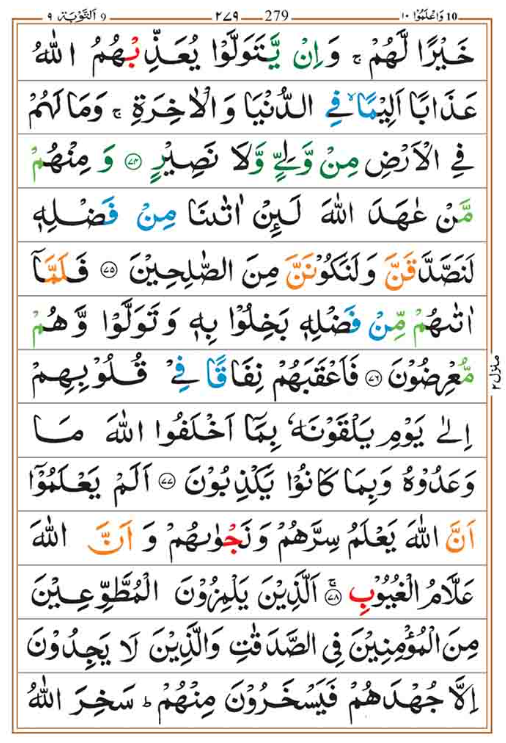 10 وَاعْلَمُوْٓا ١٠ 279 ٢٧٩ 9 اَلتَّوْبَة ٩
خَيْرًا لَّهُمْ ۚ وَاِنْ يَّتَوَلَّوْا يُعَذِّبْهُمُ اللّٰهُ
عَذَابًا اَلِيْمًا ۙ فِي الدُّنْيَا وَالْاٰخِرَةِ ۚ وَمَا لَهُمْ
فِي الْاَرْضِ مِنْ وَّلِيٍّ وَّلَا نَصِيْرٍ ﴿٧٤﴾ وَمِنْهُمْ
مَّنْ عٰهَدَ اللّٰهَ لَىِٕنْ اٰتٰىنَا مِنْ فَضْلِهٖ
لَنَصَّدَّقَنَّ وَلَنَكُوْنَنَّ مِنَ الصّٰلِحِيْنَ ﴿٧٥﴾ فَلَمَّاۤ
اٰتٰىهُمْ مِّنْ فَضْلِهٖ بَخِلُوْا بِهٖ وَتَوَلَّوْا وَّهُمْ
مُّعْرِضُوْنَ ﴿٧٦﴾ فَاَعْقَبَهُمْ نِفَاقًا فِيْ قُلُوْبِهِمْ
اِلٰى يَوْمِ يَلْقَوْنَهٗ بِمَاۤ اَخْلَفُوا اللّٰهَ مَا
وَعَدُوْهُ وَبِمَا كَانُوْا يَكْذِبُوْنَ ﴿٧٧﴾ اَلَمْ يَعْلَمُوْۤا
اَنَّ اللّٰهَ يَعْلَمُ سِرَّهُمْ وَنَجْوٰىهُمْ وَاَنَّ اللّٰهَ
عَلَّامُ الْغُيُوْبِ ۚ﴿٧٨﴾ اَلَّذِيْنَ يَلْمِزُوْنَ الْمُطَّوِّعِيْنَ
مِنَ الْمُؤْمِنِيْنَ فِي الصَّدَقٰتِ وَالَّذِيْنَ لَا يَجِدُوْنَ
اِلَّا جُهْدَهُمْ فَيَسْخَرُوْنَ مِنْهُمْ ؕ سَخِرَ اللّٰهُ
منزل ٢